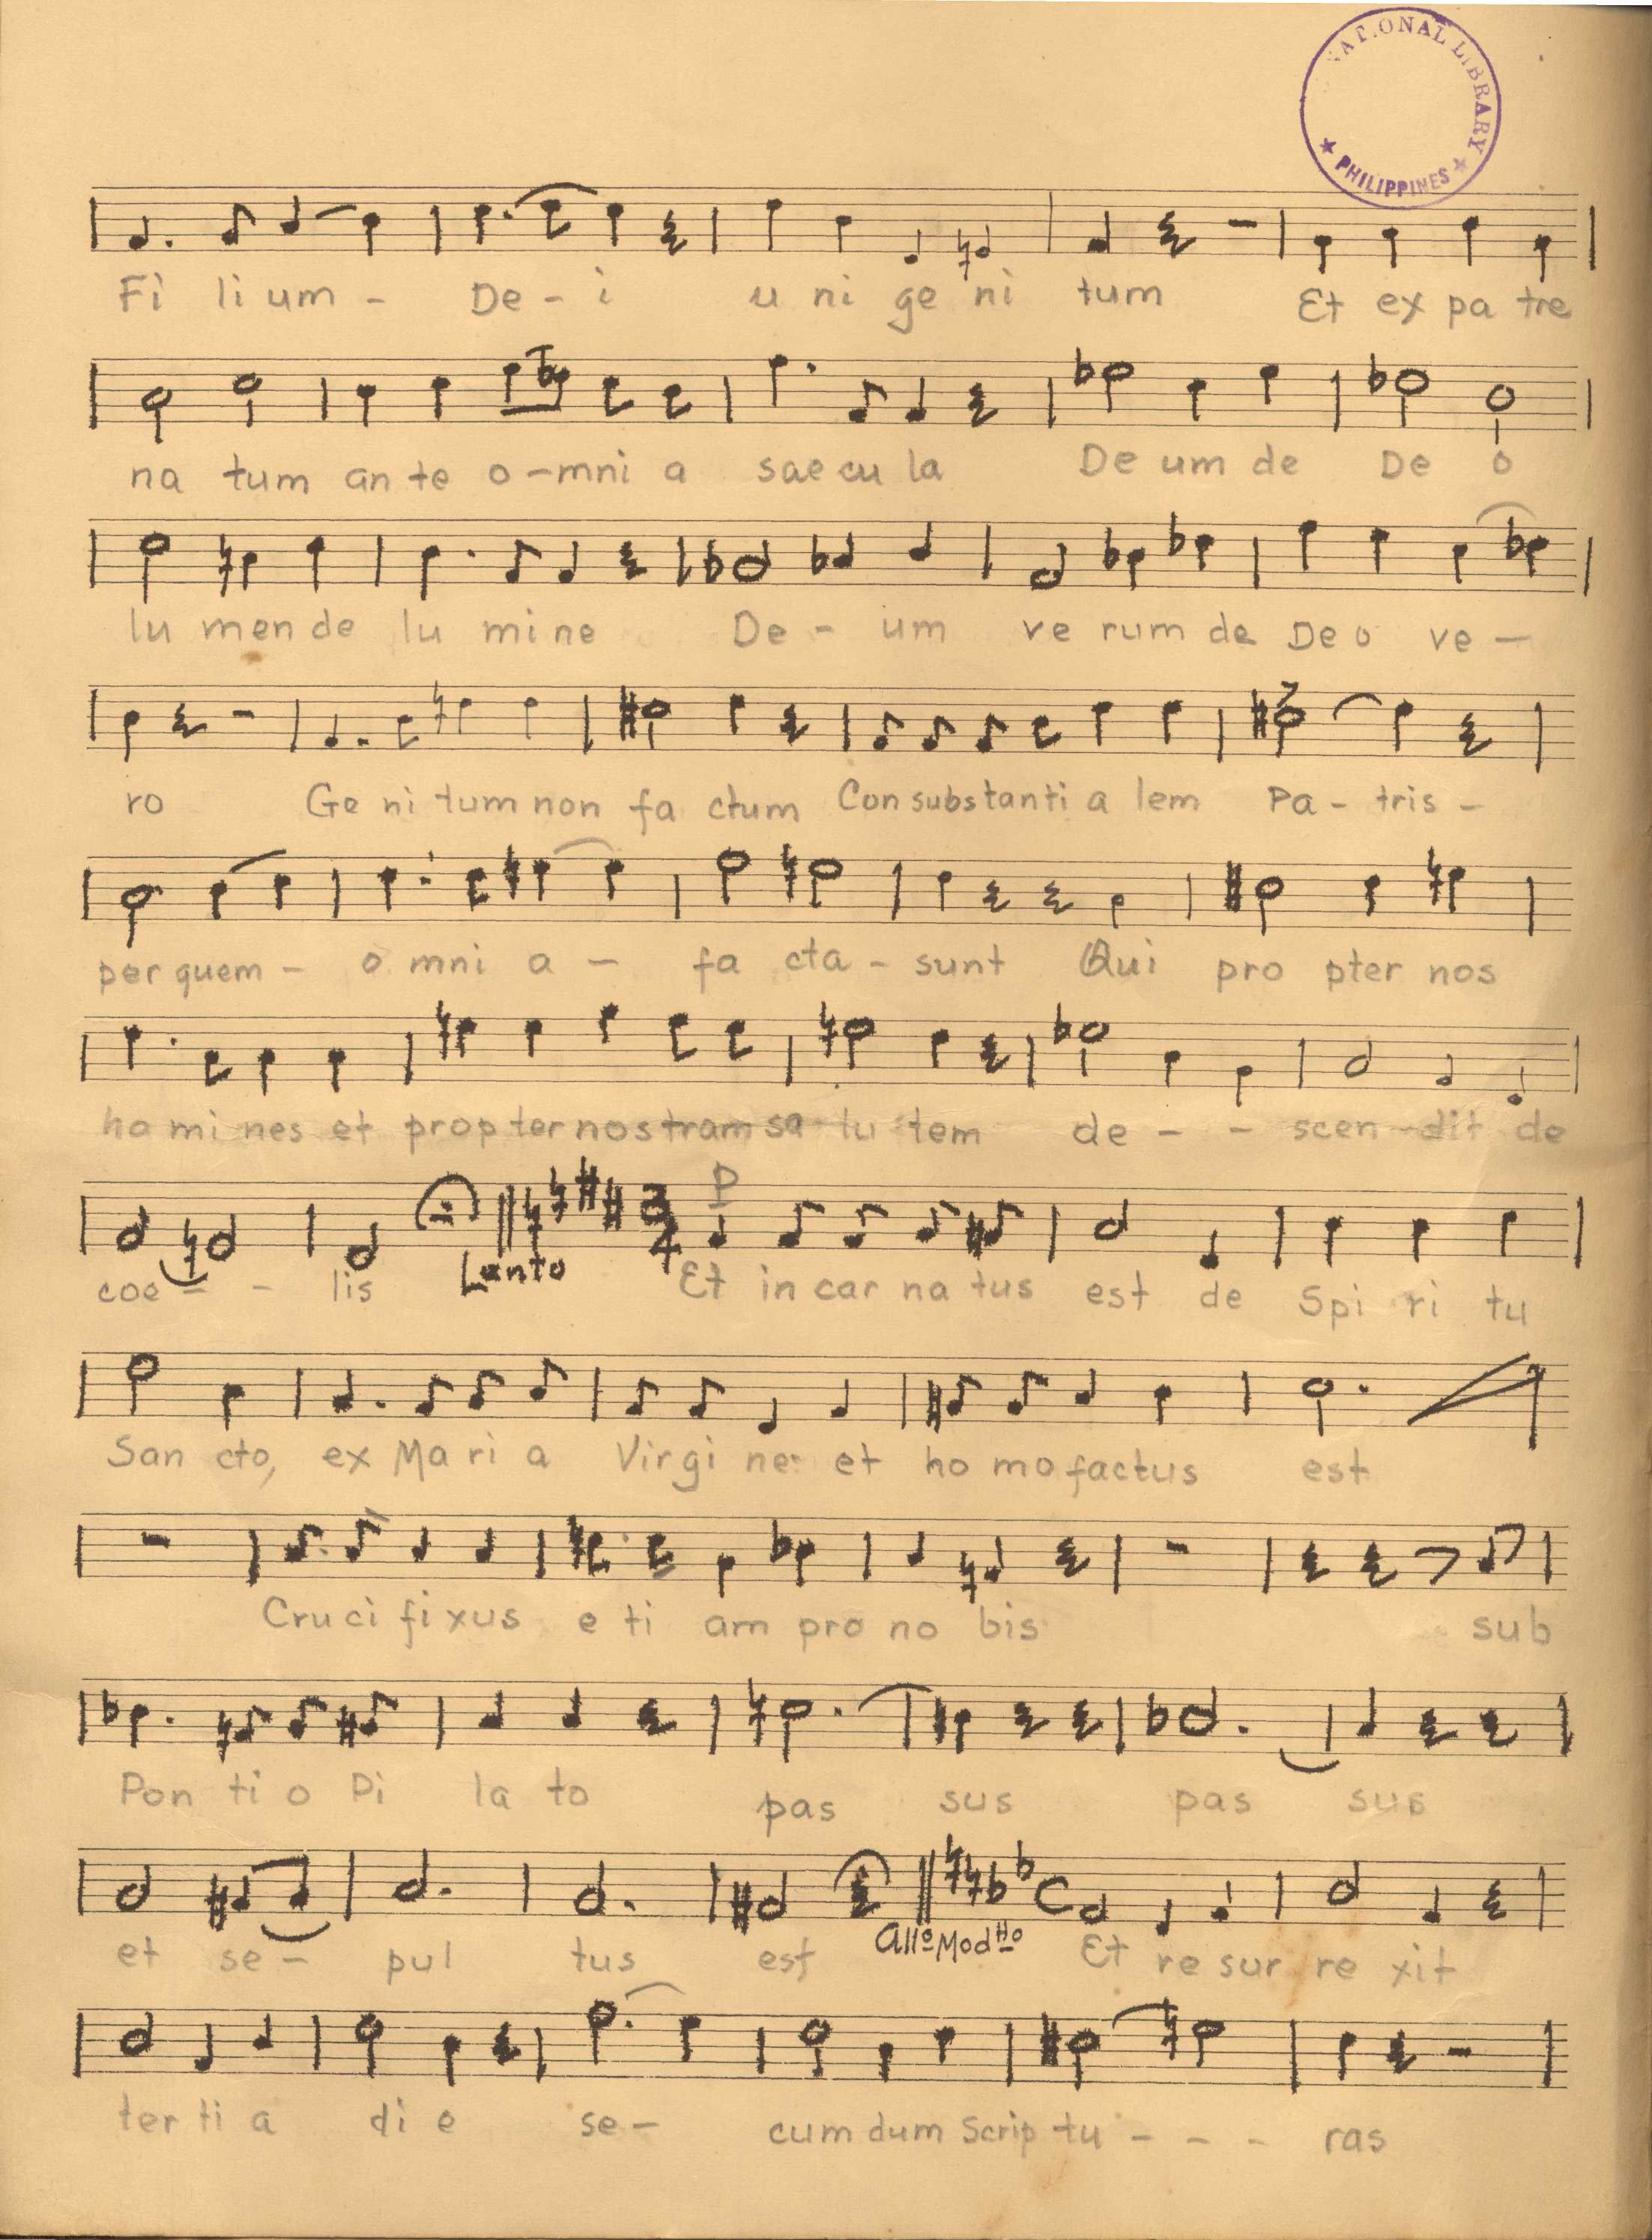 NATIONAL LIBRARY
★ PHILIPPINES ★
Fi li um - De - i u ni ge ni tum Et ex pa tre
na tum an te o - mni a sae cu la De um de De o
lu men de lu mi ne De - um ve rum de De o ve -
ro Ge ni tum non fa ctum Con subs tan ti a lem Pa - tris -
per quem - o mni a - fa cta - sunt Qui pro pter nos
ho mi nes et prop ter nos tram sa lu tem de - - scen - dit de
3/4 P
coe - - lis Lento Et in car na tus est de Spi ri tu
San cto, ex Ma ri a Virgi ne et ho mo factus est
Cru ci fi xus e ti am pro no bis sub
Pon ti o Pi la to pas sus pas sus
C
et se - pul tus est Allº Modtº Et re sur re xit
ter ti a di e se - cum dum Scrip tu - - - ras